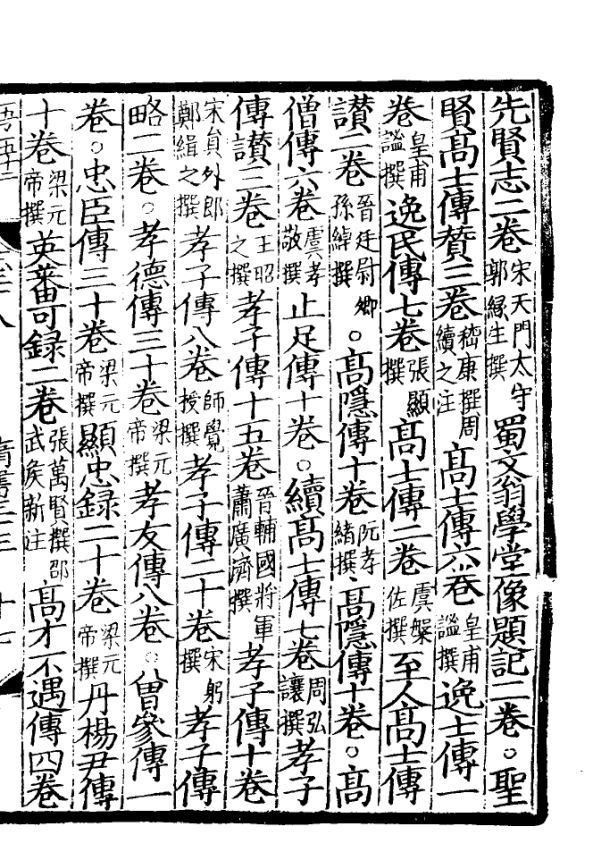 先賢志二卷宋天門太守郭緣生撰蜀文翁學堂像題記二卷。聖
賢髙士傳賛三卷嵇康撰周續之注髙士傳六卷皇甫謐撰逸士傳一
卷皇甫謐撰逸民傳七卷張顯撰髙士傳二卷虞槃佐撰至人髙士傳
讃二卷晉廷尉卿孫綽撰。髙隱傳十卷阮孝緒撰髙隱傳十卷。髙
僧傳六卷虞孝敬撰止足傳十卷。續髙士傳七卷周弘讓撰孝子
傳讃三卷王昭之撰孝子傳十五卷晉輔國將軍蕭廣濟撰孝子傳十卷
宋貟外郎鄭緝之撰孝子傳八卷師覺授撰孝子傳二十卷宋躬撰孝子傳
略二卷。孝德傳三十卷梁元帝撰孝友傳八卷。曾參傳一
卷。忠臣傳三十卷梁元帝撰顯忠録二十卷梁元帝撰丹楊尹傳
十卷梁元帝撰英蕃可録二卷張萬賢撰邵武侯新注髙才不遇傳四卷